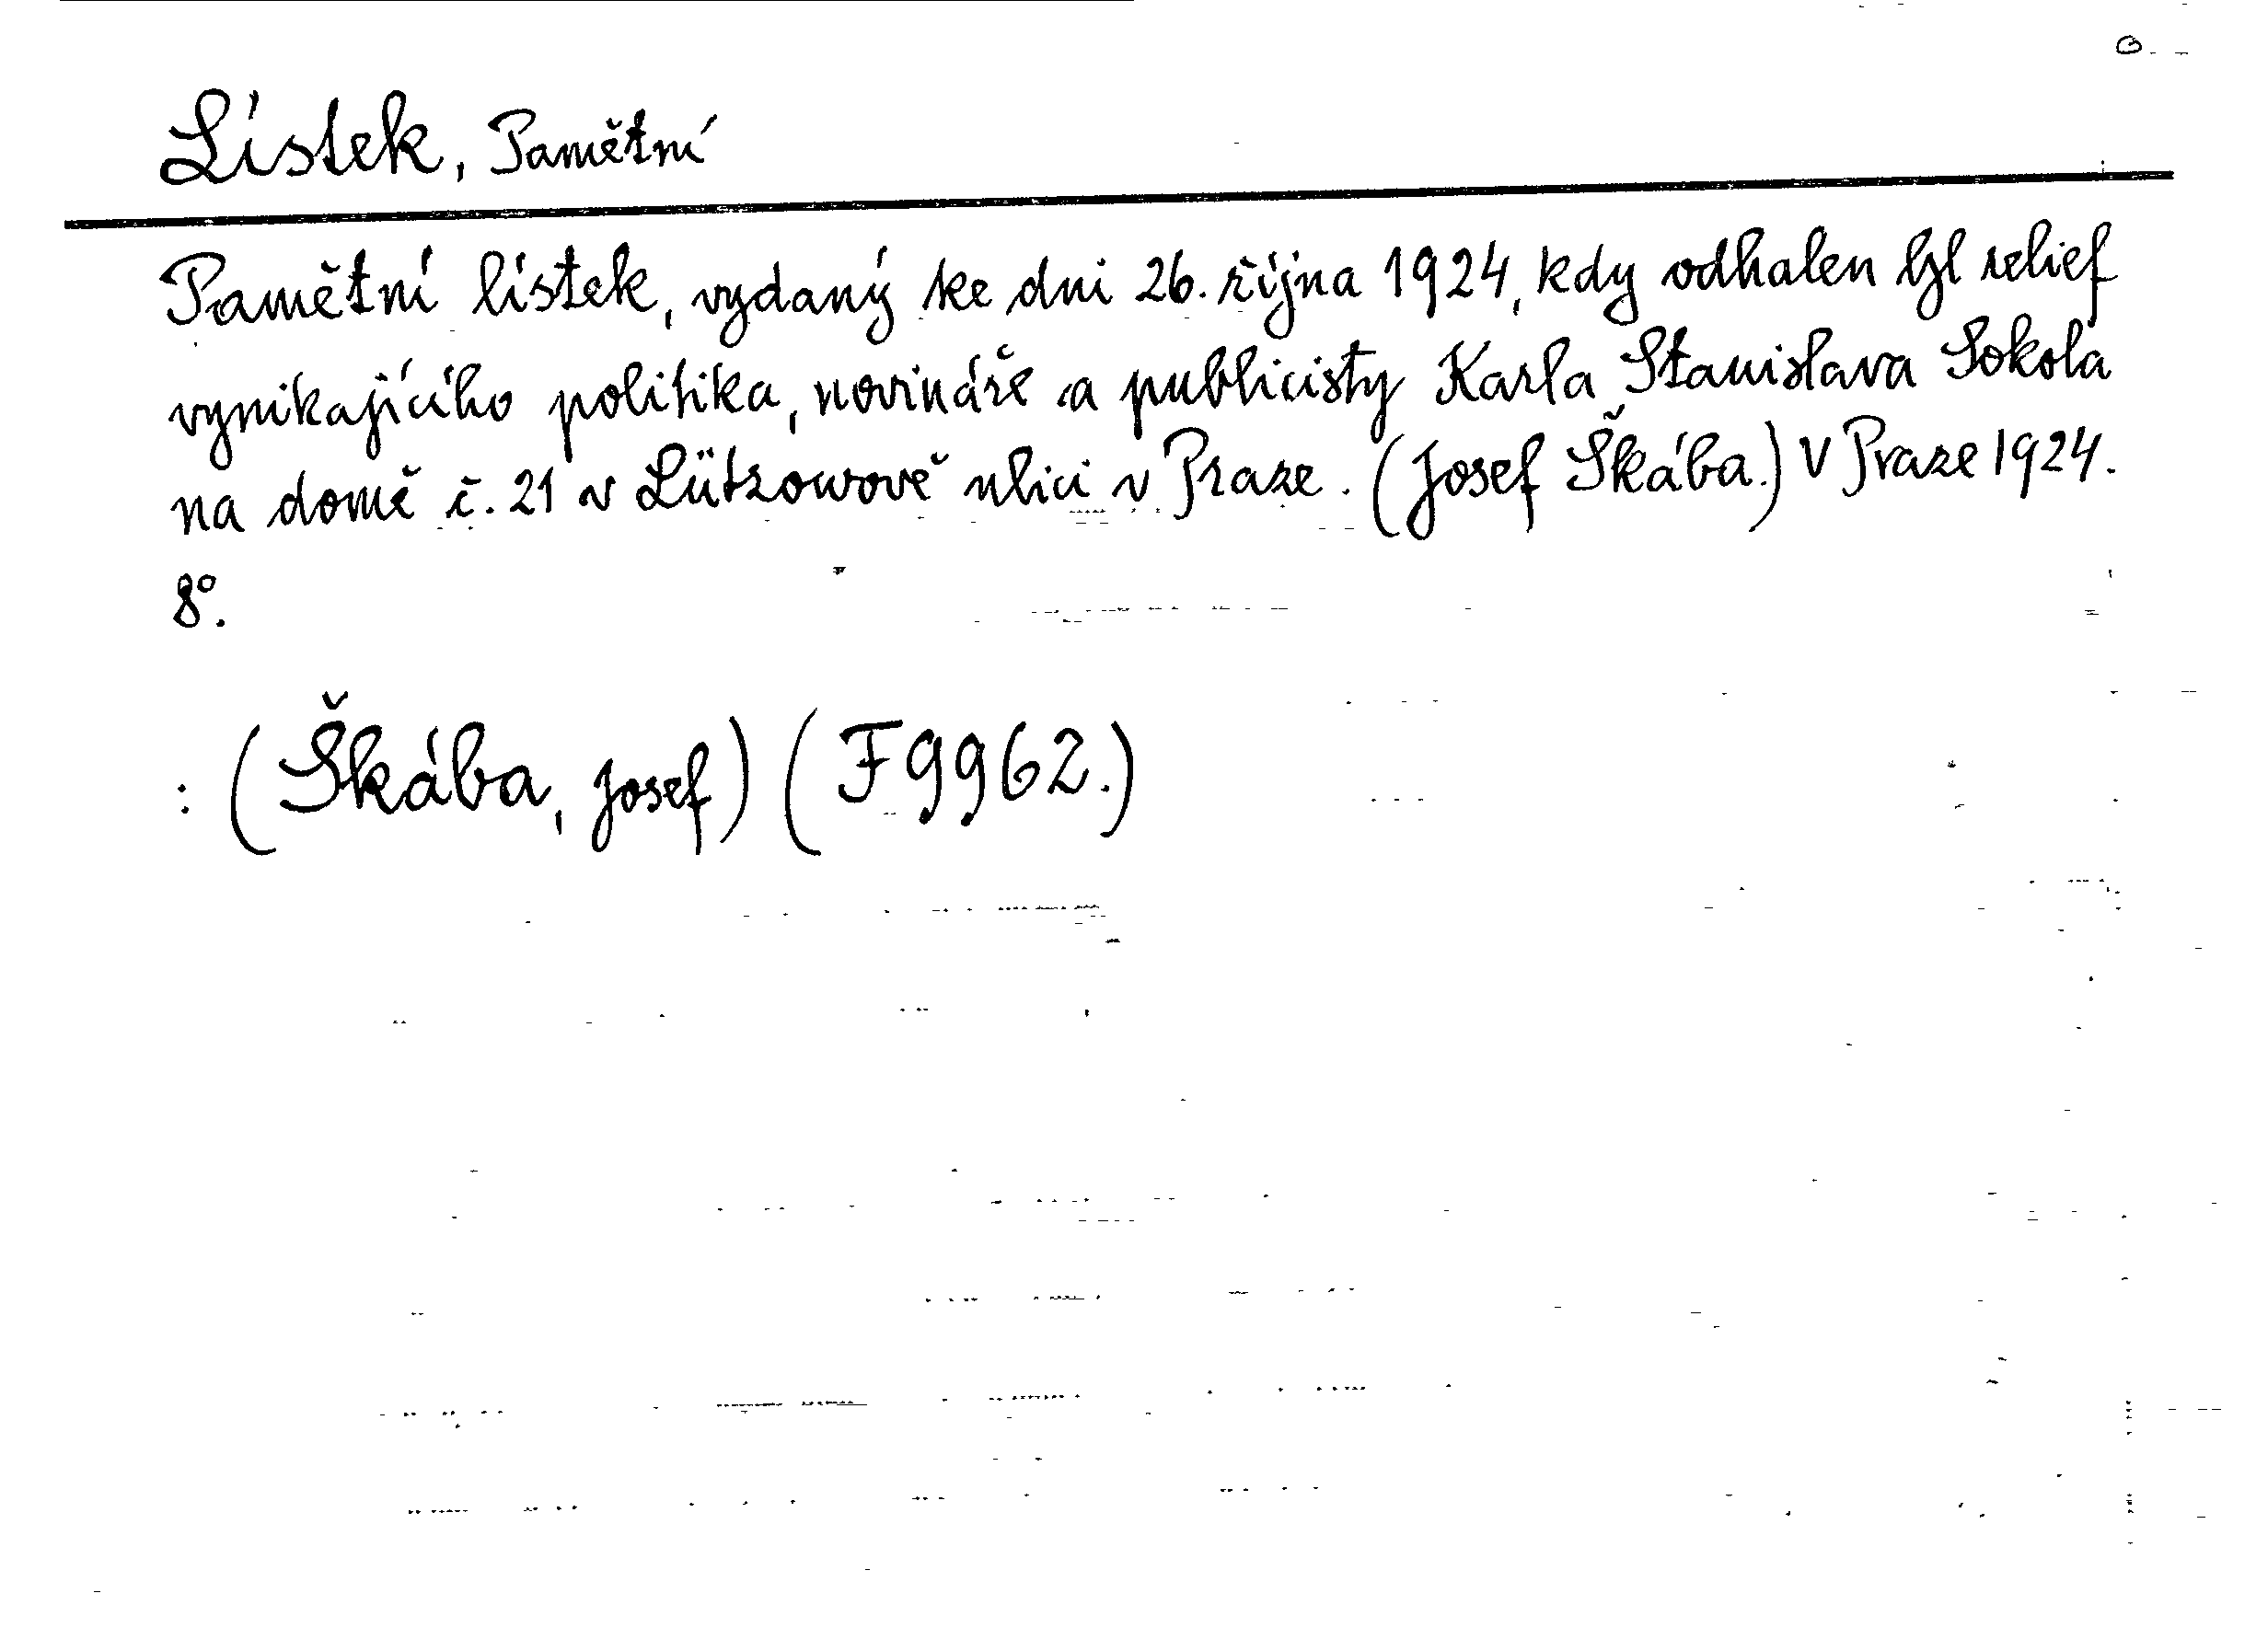 Lístek, Pamětní
Pamětní lístek, vydaný ke dni 26. října 1924, kdy odhalen byl relief
vynikajícího politika, novináře a publicisty Karla Stanislava Sokola
na domě č. 21 v Lützowově ulici v Praze. (Josef Škába.) V Praze 1924.
8°.
: (Škába, Josef) (F 9962.)